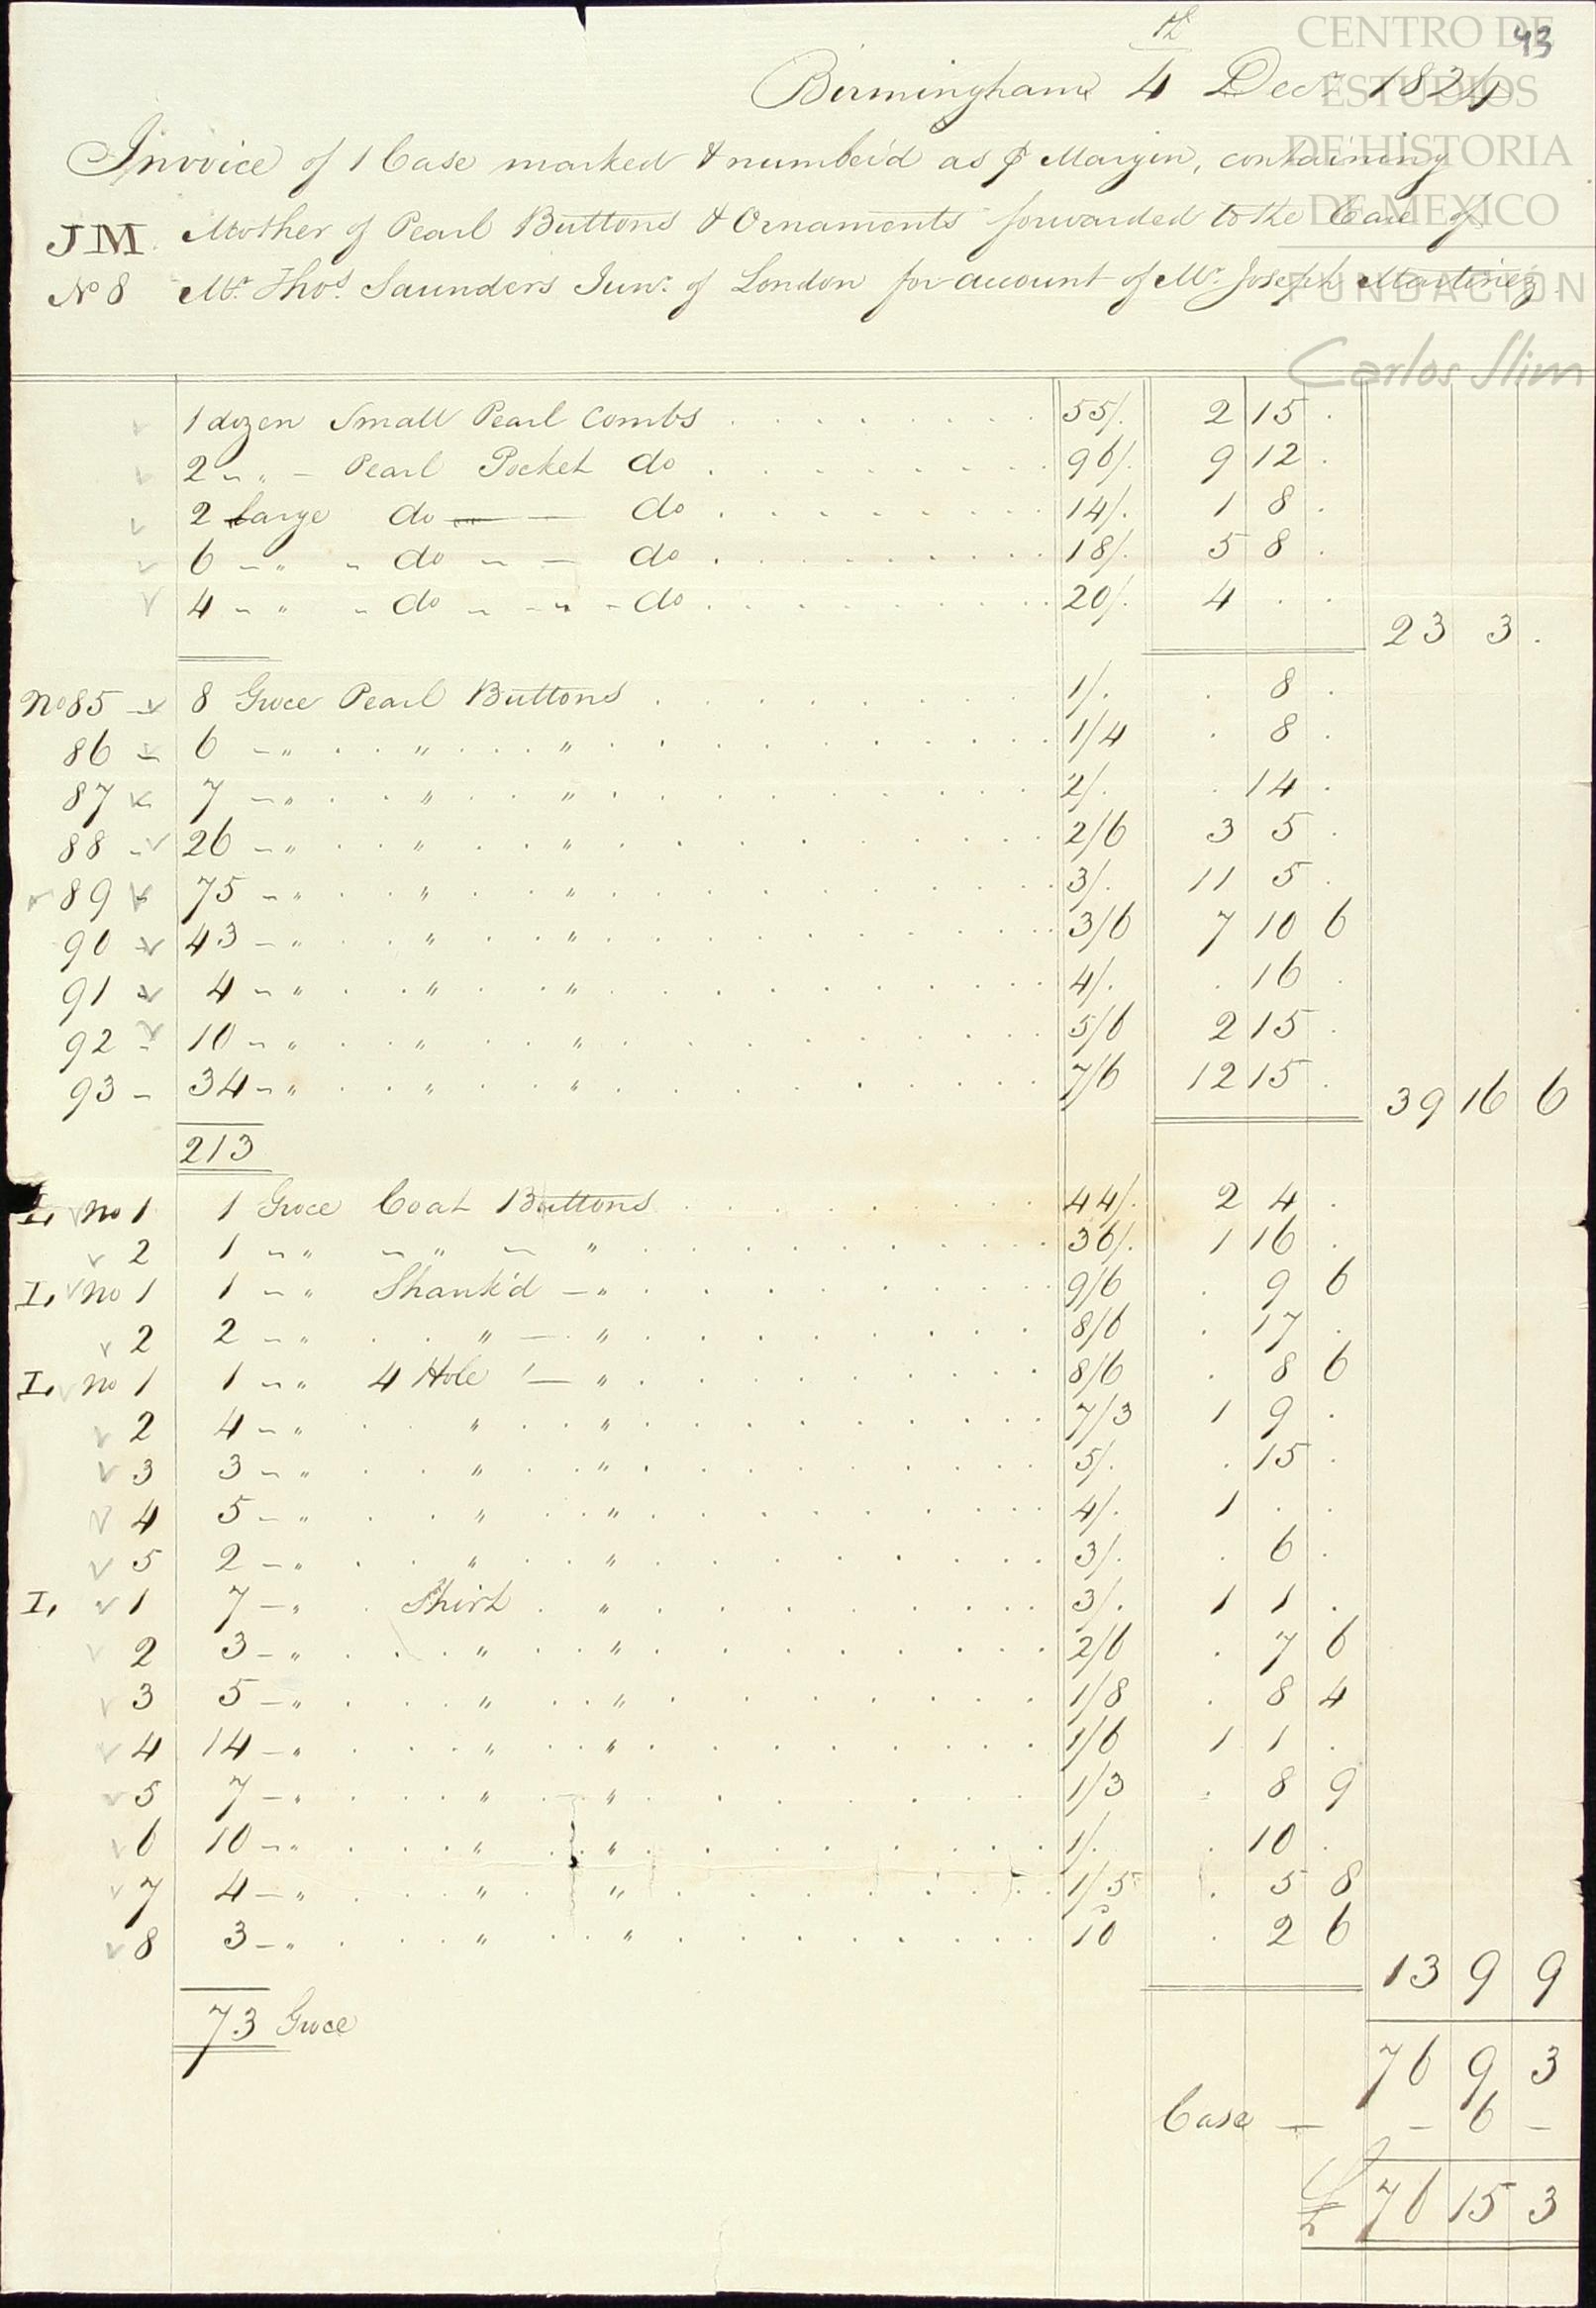 43
CENTRO DE
ESTUDIOS
DE HISTORIA
DE MEXICO
FUNDACIÓN
Carlos Slim
Birmingham 4th Decr 1824
Invoice of 1 Case marked & number'd as ⅌ Margin, containing
JM Mother of Pearl Buttons & Ornaments forwarded to the Care of
No 8 Mr. Thos. Saunders Junr. of London for account of Mr. Joseph Martinez
1 dozen Small Pearl Combs 55/. 2 15 .
2 " Pearl Pocket do 96/. 9 12 .
2 large do do 14/. 1 8 .
6 " do do 18/. 5 8 .
4 " do " do 20/. 4 . .
23 3 .
No 85 8 Groce Pearl Buttons 1/. . 8 .
86 6 " " " 1/4 . 8 .
87 7 " " " 2/. . 14 .
88 26 " " " 2/6 3 5 .
89 75 " " " 3/. 11 5 .
90 43 " " " 3/6 7 10 6
91 4 " " " 4/. . 16 .
92 10 " " " 5/6 2 15 .
93 34 " " " 7/6 12 15 .
39 16 6
213
I, No 1 1 Groce Coat Buttons 44/. 2 4 .
2 1 " " " 36/. 1 16 .
I, No 1 1 " Shank'd " 9/6 . 9 6
2 2 " " " 8/6 . 17 .
I, No 1 1 " 4 Hole " 8/6 . 8 6
2 4 " " " 7/3 1 9 .
3 3 " " " 5/. . 15 .
4 5 " " " 4/. 1 . .
5 2 " " " 3/. . 6 .
I, 1 7 " Shirt " 3/. 1 1 .
2 3 " " " 2/6 . 7 6
3 5 " " " 1/8 . 8 4
4 14 " " " 1/6 1 1 .
5 7 " " " 1/3 . 8 9
6 10 " " " 1/. . 10 .
7 4 " " " 1/5 . 5 8
8 3 " " " 10 . 2 6
13 9 9
73 Groce
76 9 3
Case — – 6 –
£ 76 15 3